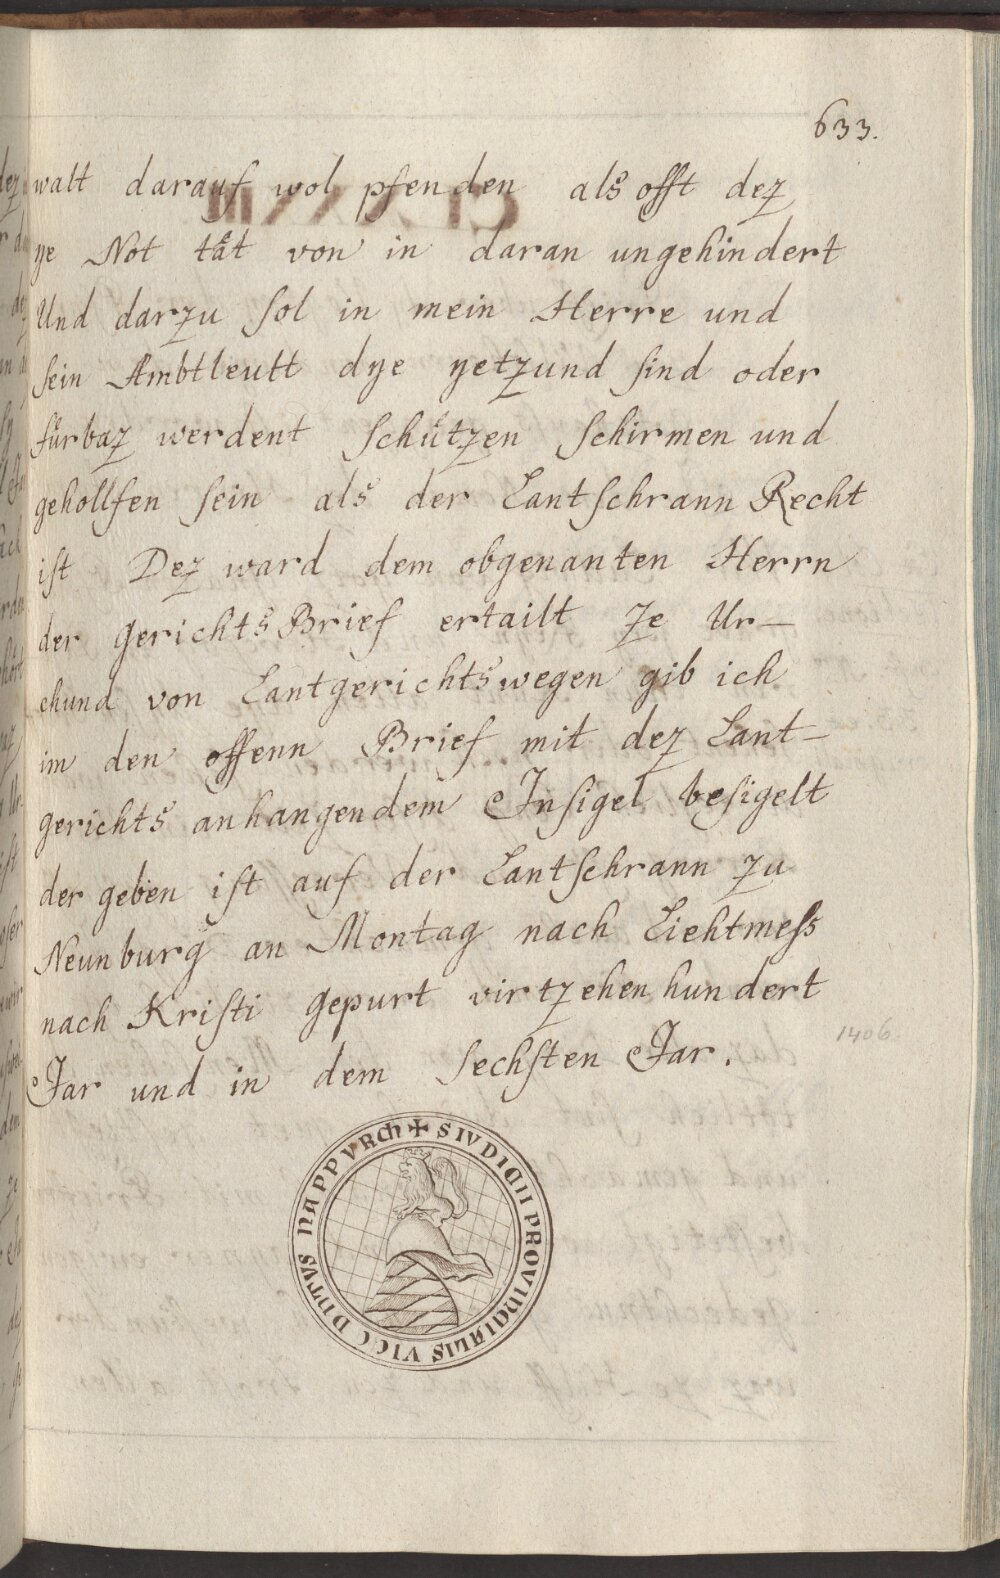 633.
walt darauf wol pfenden als offt dez
ye Not tät von in daran ungehindert
Und darzu sol in mein Herre und
sein Ambtleutt dye yetzund sind oder
fürbaz werdent schützen schirmen und
gehollfen sein als der Lantschrann Recht
ist Dez ward dem obgenanten Herrn
der gerichts Brief ertailt ze Ur-
chund von Lantgerichtswegen gib ich
im den offenn Brief mit dez Lant-
gerichts anhangendem Insigel besigelt
der geben ist auf der Lantschrann zu
Neunburg an Montag nach Liehtmess
nach Kristi gepurt virtzehenhundert
Jar und in dem sechsten Jar.
1406
✠ SIVDICII PROVINCIALIS VICC DNTVS NAPPVRCH